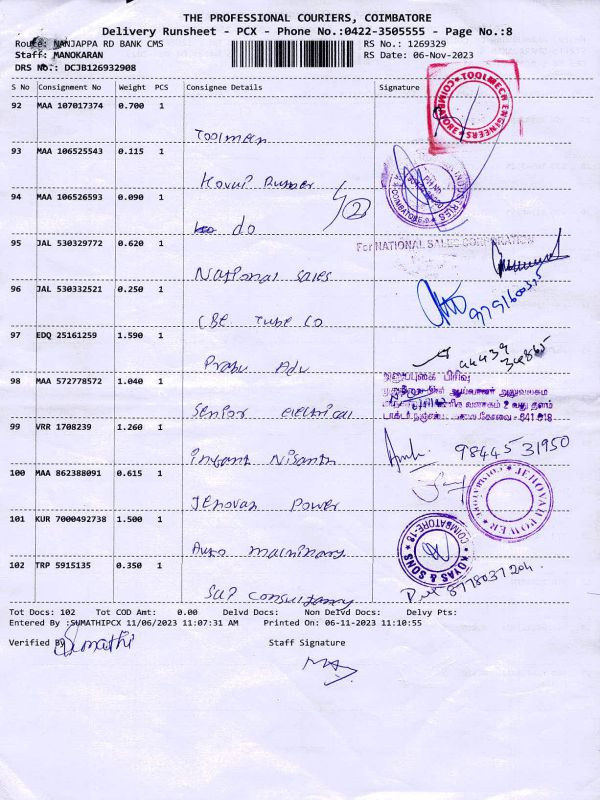 THE PROFESSIONAL COURIERS, COIMBATORE
Delivery Runsheet - PCX - Phone No.:0422-3505555 - Page No.:8
Route: NANJAPPA RD BANK CMS RS No.: 1269329
Staff: MANOKARAN RS Date: 06-Nov-2023
DRS No.: DCJB126932908
S No Consignment No Weight PCS Consignee Details Signature
92 MAA 107017374 0.700 1
TOOLMECH ENGINEERS
COIMBATORE
Toolmen
93 MAA 106525543 0.115 1
Kovai Rubber
94 MAA 106526593 0.090 1
INDUSTRIES
COIMBATORE
do 2
95 JAL 530329772 0.620 1
For NATIONAL SALES CORPORATION
National Sales
96 JAL 530332521 0.250 1
CBE Tube Co
97 EDQ 25161259 1.590 1
Prabu Adv
98 MAA 572778572 1.040 1
அனுப்புகை பிரிவு
641 018
Senior Electrical
99 VRR 1708239 1.260 1
98445 31950
Nisanth
100 MAA 862388091 0.615 1
JEHOVAH POWER
Jehovah Power
101 KUR 7000492738 1.500 1
COIMBATORE-18
KOYAS & SONS
Auto Machinary
102 TRP 5915135 0.350 1
8778037204
Sap Consultancy
Tot Docs: 102 Tot COD Amt: 0.00 Delvd Docs: Non Delvd Docs: Delvy Pts:
Entered By :SUMATHIPCX 11/06/2023 11:07:31 AM Printed On: 06-11-2023 11:10:55
Verified By Sumathi Staff Signature